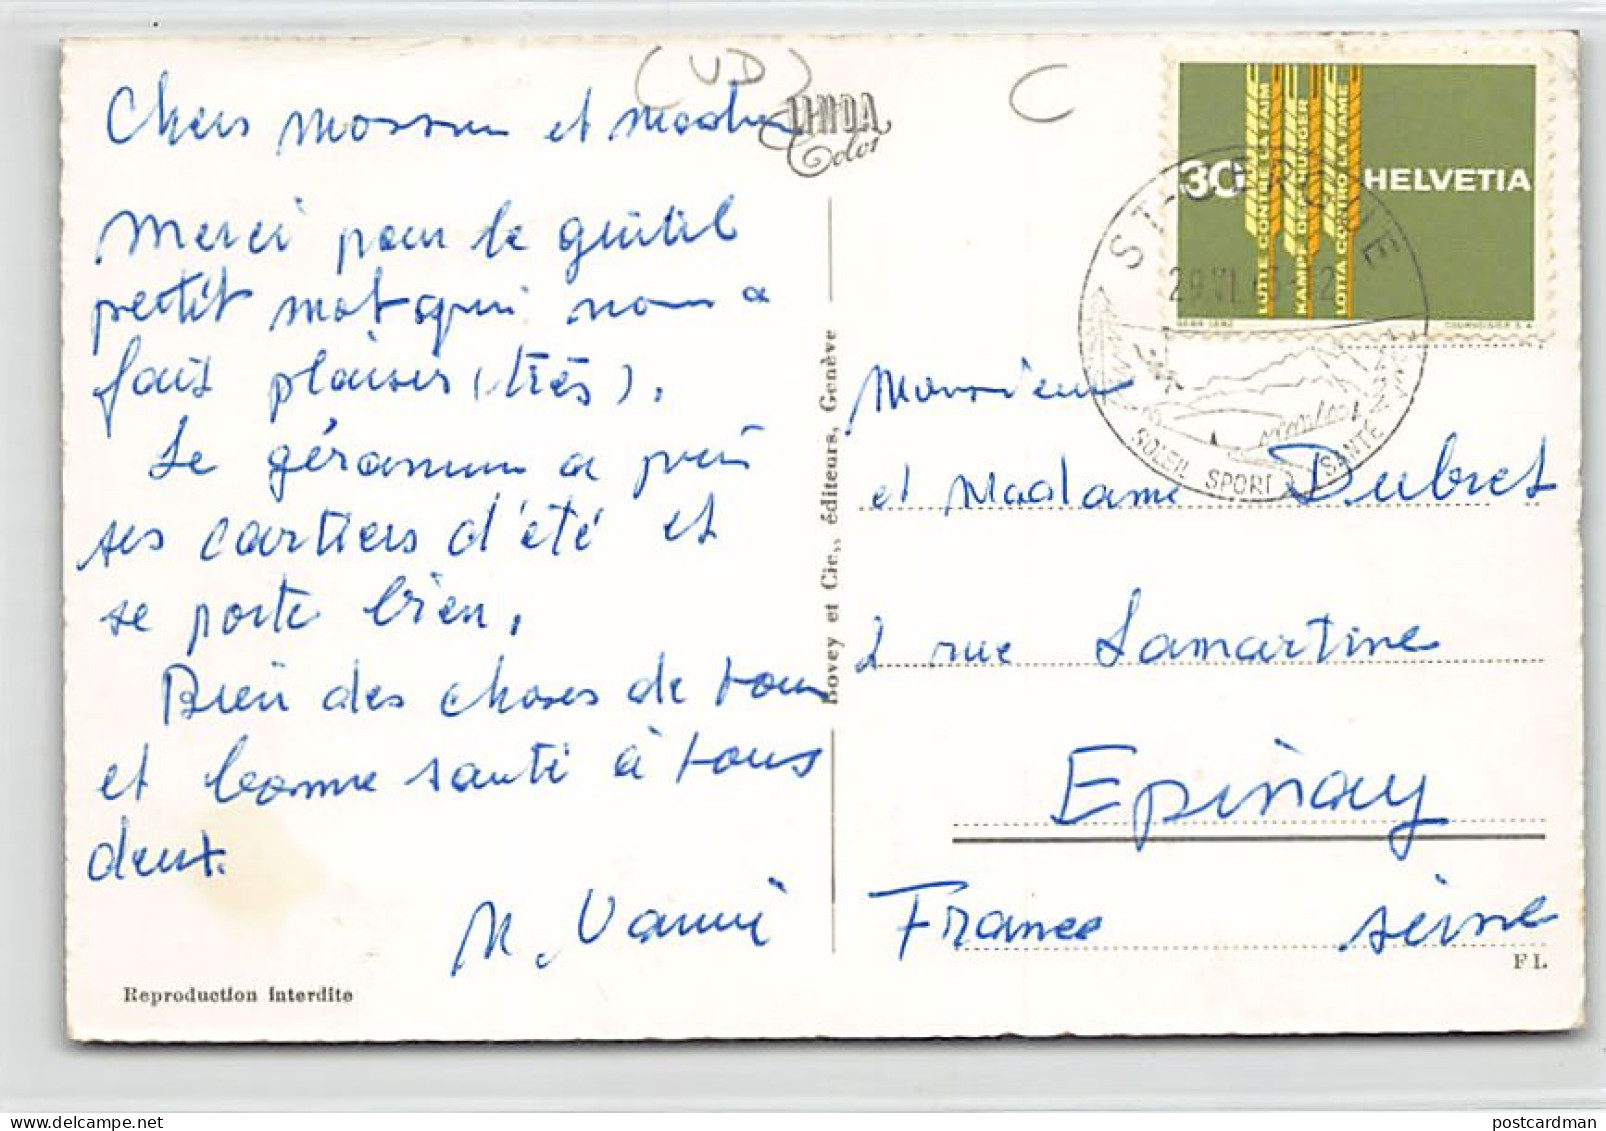 (VD)
C
LINDA
Color
Chers Monsieur et Madame
Merci pour le gentil
petit mot qui nous a
fait plaisir (très).
Le géranium a pris
ses cartiers d'été et
se porte bien.
Bien des choses de tous
et bonne santé à tous
deux.
M. Vanni
Reproduction interdite
Bovey et Cie., éditeurs, Genève
30
HELVETIA
LUTTE CONTRE LA FAIM
KAMPF DEM HUNGER
LOTTA CONTRO LA FAME
HANS LANG
COURVOISIER S.A.
ST-CERGUE
29.VI.63-12
SOLEIL SPORT SANTÉ
Monsieur
et Madame Dubret
2 rue Lamartine
Epinay
France Seine
FL
postcardman